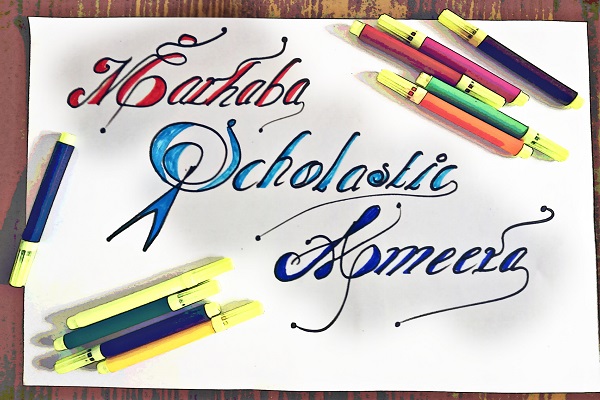 Marhaba
Scholastic
Ameera